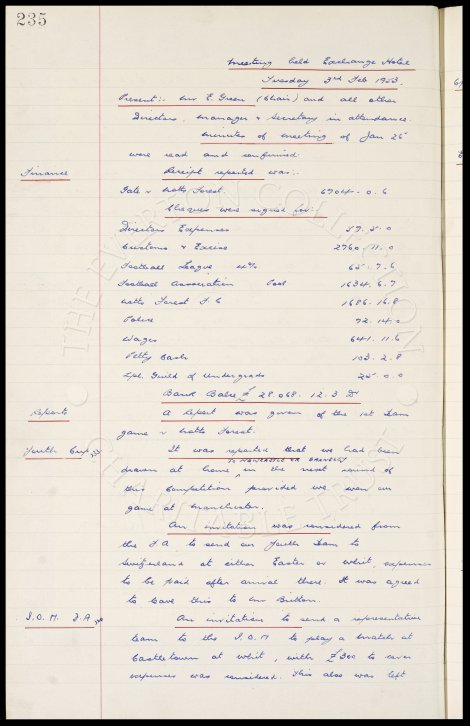 235
Meeting held Exchange Hotel
Tuesday 3rd Feb 1953.
Present:- Mr E. Green (Chair) and all other
Directors, Manager & Secretary in attendance.
Minutes of meeting of Jan 26
were read and confirmed.
Finance
Receipt reported was:-
Gate v Notts Forest. 6704. 0. 6
Cheques were signed for:-
Directors Expenses 57. 5. 0
Customs & Excise 2760. 11. 0
Football League 4%
Football Association Pool 1634. 6. 7
Notts Forest F.C 1686. 16. 8
Police 72. 14. 0
Wages 641. 11. 6
Petty Cash 103. 2. 8
Lpl. Guild of Undergrads 25. 0. 0
Bank Balce £ 28.068. 12. 3 Dr
Reports
A report was given of the 1st Team
game v Notts Forest.
Youth Cup
It was reported that we had been
drawn at home in the next round of
to Newcastle or Barnsley
this competition provided we won our
game at Manchester.
An invitation was considered from
the F.A. to send our Youth Team to
Switzerland at either Easter or Whit, expenses
to be paid after arrival there. It was agreed
to leave this to Mr Britton.
I.O.M. F.A.
An invitation to send a representative
team to the I.O.M to play a match at
Castletown at Whit, with £300 to cover
expenses was considered. This also was left
THE EVERTON COLLECTION
CHARITABLE TRUST